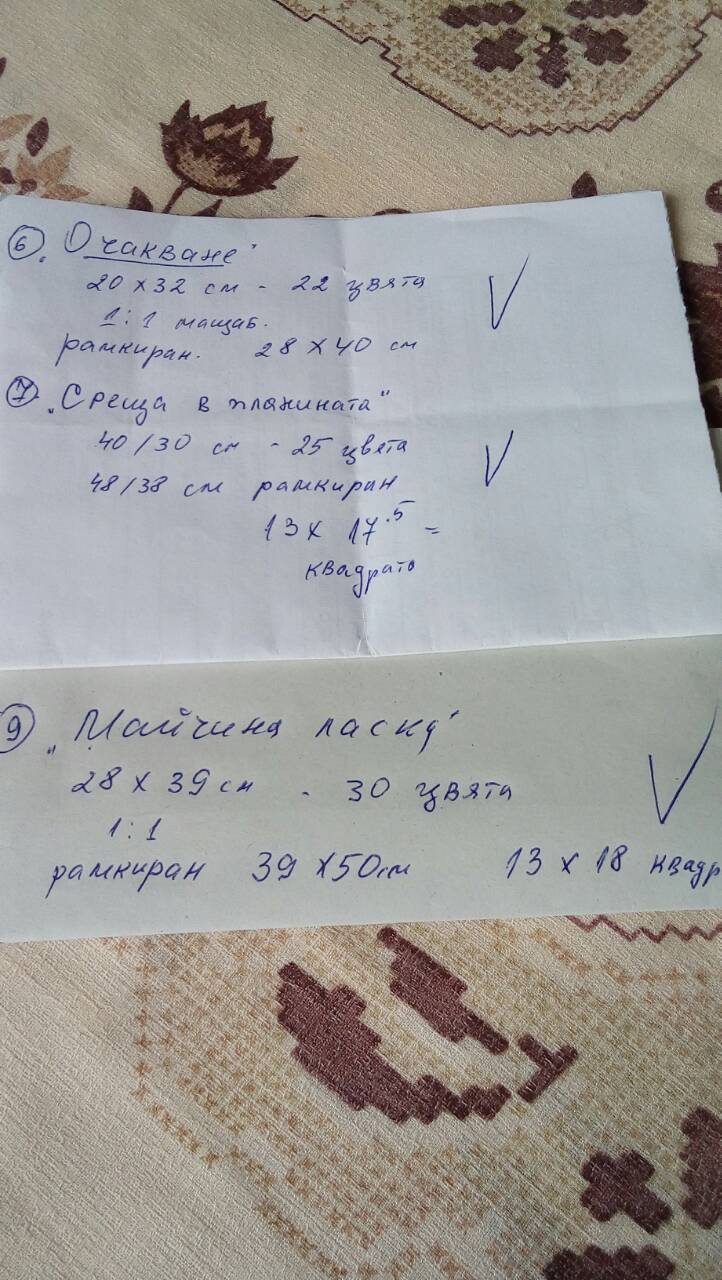 6. Очакване"
20 x 32 см - 22 цвята
1:1 мащаб.
рамкиран. 28 x 40 см
7. "Среща в планината"
40/30 см - 25 цвята
48/38 см рамкиран
13 x 17.5 =
квадрата
9. "Майчина ласка"
28 x 39 см - 30 цвята
1:1
рамкиран 39 x 50 см 13 x 18 квадр